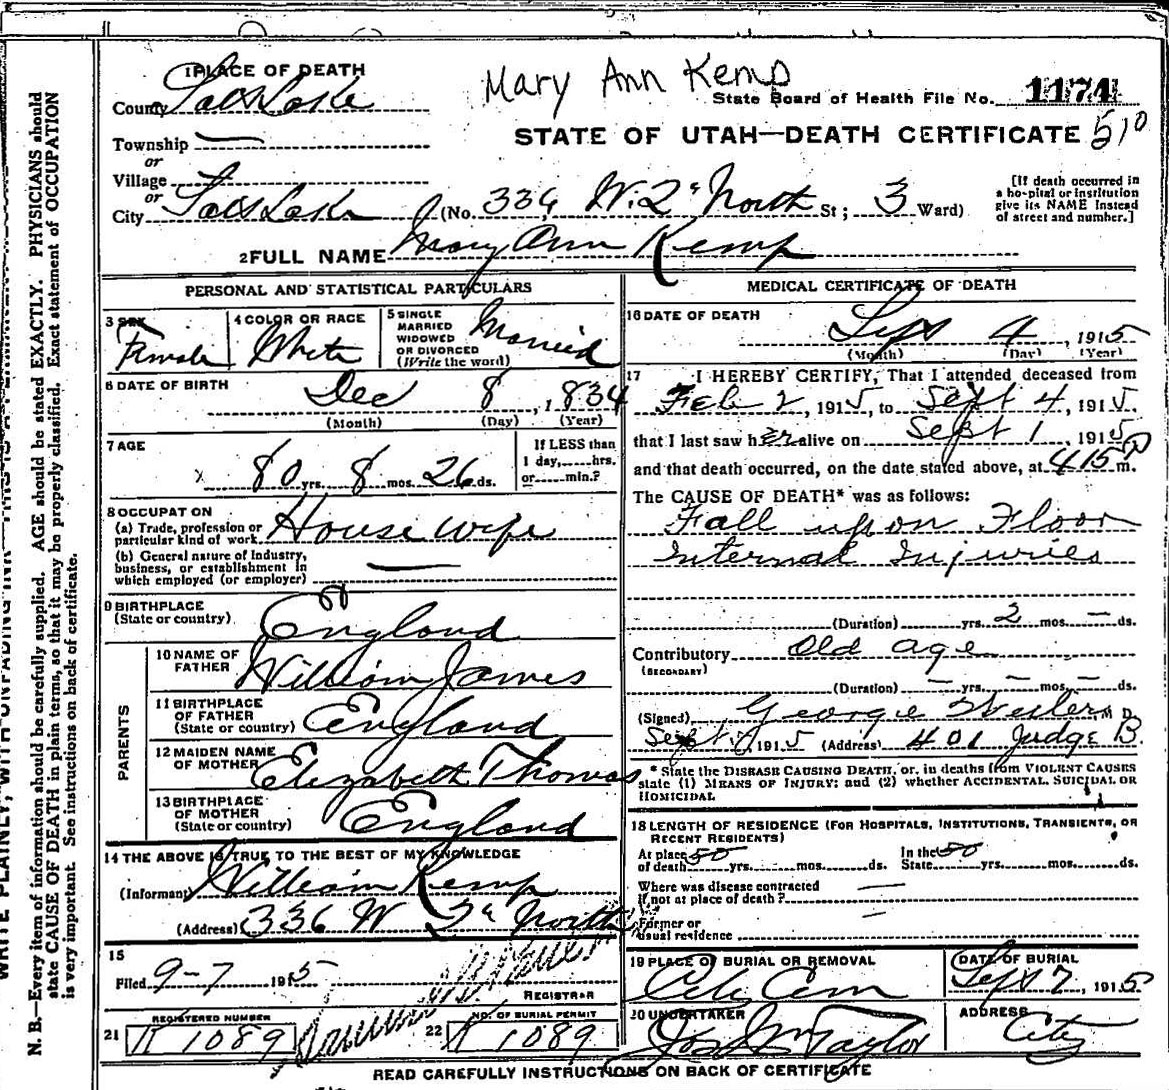 Mary Ann Kemp
1 PLACE OF DEATH
County Salt Lake
State Board of Health File No. 1174
STATE OF UTAH—DEATH CERTIFICATE 510
Township —
or
Village
or
City Salt Lake (No. 336 W. 2d North St; 3 Ward)
[If death occurred in
a hospital or institution
give its NAME instead
of street and number.]
2 FULL NAME Mary Ann Kemp
PERSONAL AND STATISTICAL PARTICULARS
3 SEX
Female
4 COLOR OR RACE
White
5 SINGLE
MARRIED
WIDOWED
OR DIVORCED
(Write the word)
Married
6 DATE OF BIRTH
Dec 8, 1834
(Month) (Day) (Year)
7 AGE
80 yrs. 8 mos. 26 ds.
If LESS than
1 day,......hrs.
or......min.?
8 OCCUPATION
(a) Trade, profession or
particular kind of work House wife
(b) General nature of industry,
business, or establishment in
which employed (or employer) —
9 BIRTHPLACE
(State or country) England
PARENTS
10 NAME OF
FATHER William James
11 BIRTHPLACE
OF FATHER
(State or country) England
12 MAIDEN NAME
OF MOTHER Elizabeth Thomas
13 BIRTHPLACE
OF MOTHER
(State or country) England
14 THE ABOVE IS TRUE TO THE BEST OF MY KNOWLEDGE
(Informant) William Kemp
(Address) 336 W 2d North
15
Filed 9-7 1915
REGISTRAR
21 REGISTERED NUMBER
K 1089
22 NO. OF BURIAL PERMIT
K 1089
MEDICAL CERTIFICATE OF DEATH
16 DATE OF DEATH
Sept 4, 1915
(Month) (Day) (Year)
17 I HEREBY CERTIFY, That I attended deceased from
Feb 2, 1915, to Sept 4, 1915.
that I last saw her alive on Sept 1, 1915
and that death occurred, on the date stated above, at 4 15 P m.
The CAUSE OF DEATH* was as follows:
Fall upon Floor
Internal Injuries
(Duration) yrs. 2 mos. — ds.
Contributory Old age
(SECONDARY)
(Duration) — yrs. — mos. — ds.
(Signed) George M. D.
Sept 5, 1915 (Address) 401 Judge B
* State the DISEASE CAUSING DEATH, or, in deaths from VIOLENT CAUSES
state (1) MEANS OF INJURY; and (2) whether ACCIDENTAL, SUICIDAL OR
HOMICIDAL
18 LENGTH OF RESIDENCE (FOR HOSPITALS, INSTITUTIONS, TRANSIENTS, OR
RECENT RESIDENTS)
At place
of death 50 yrs. mos. ds. In the
State 50 yrs. mos. ds.
Where was disease contracted
if not at place of death? —
Former or
usual residence —
19 PLACE OF BURIAL OR REMOVAL
City Cem
DATE OF BURIAL
Sept 7, 1915
20 UNDERTAKER
Jos Wm Taylor
ADDRESS
City
READ CAREFULLY INSTRUCTIONS ON BACK OF CERTIFICATE
N. B.—Every item of information should be carefully supplied. AGE should be stated EXACTLY. PHYSICIANS should
state CAUSE OF DEATH in plain terms, so that it may be properly classified. Exact statement of OCCUPATION
is very important. See instructions on back of certificate.